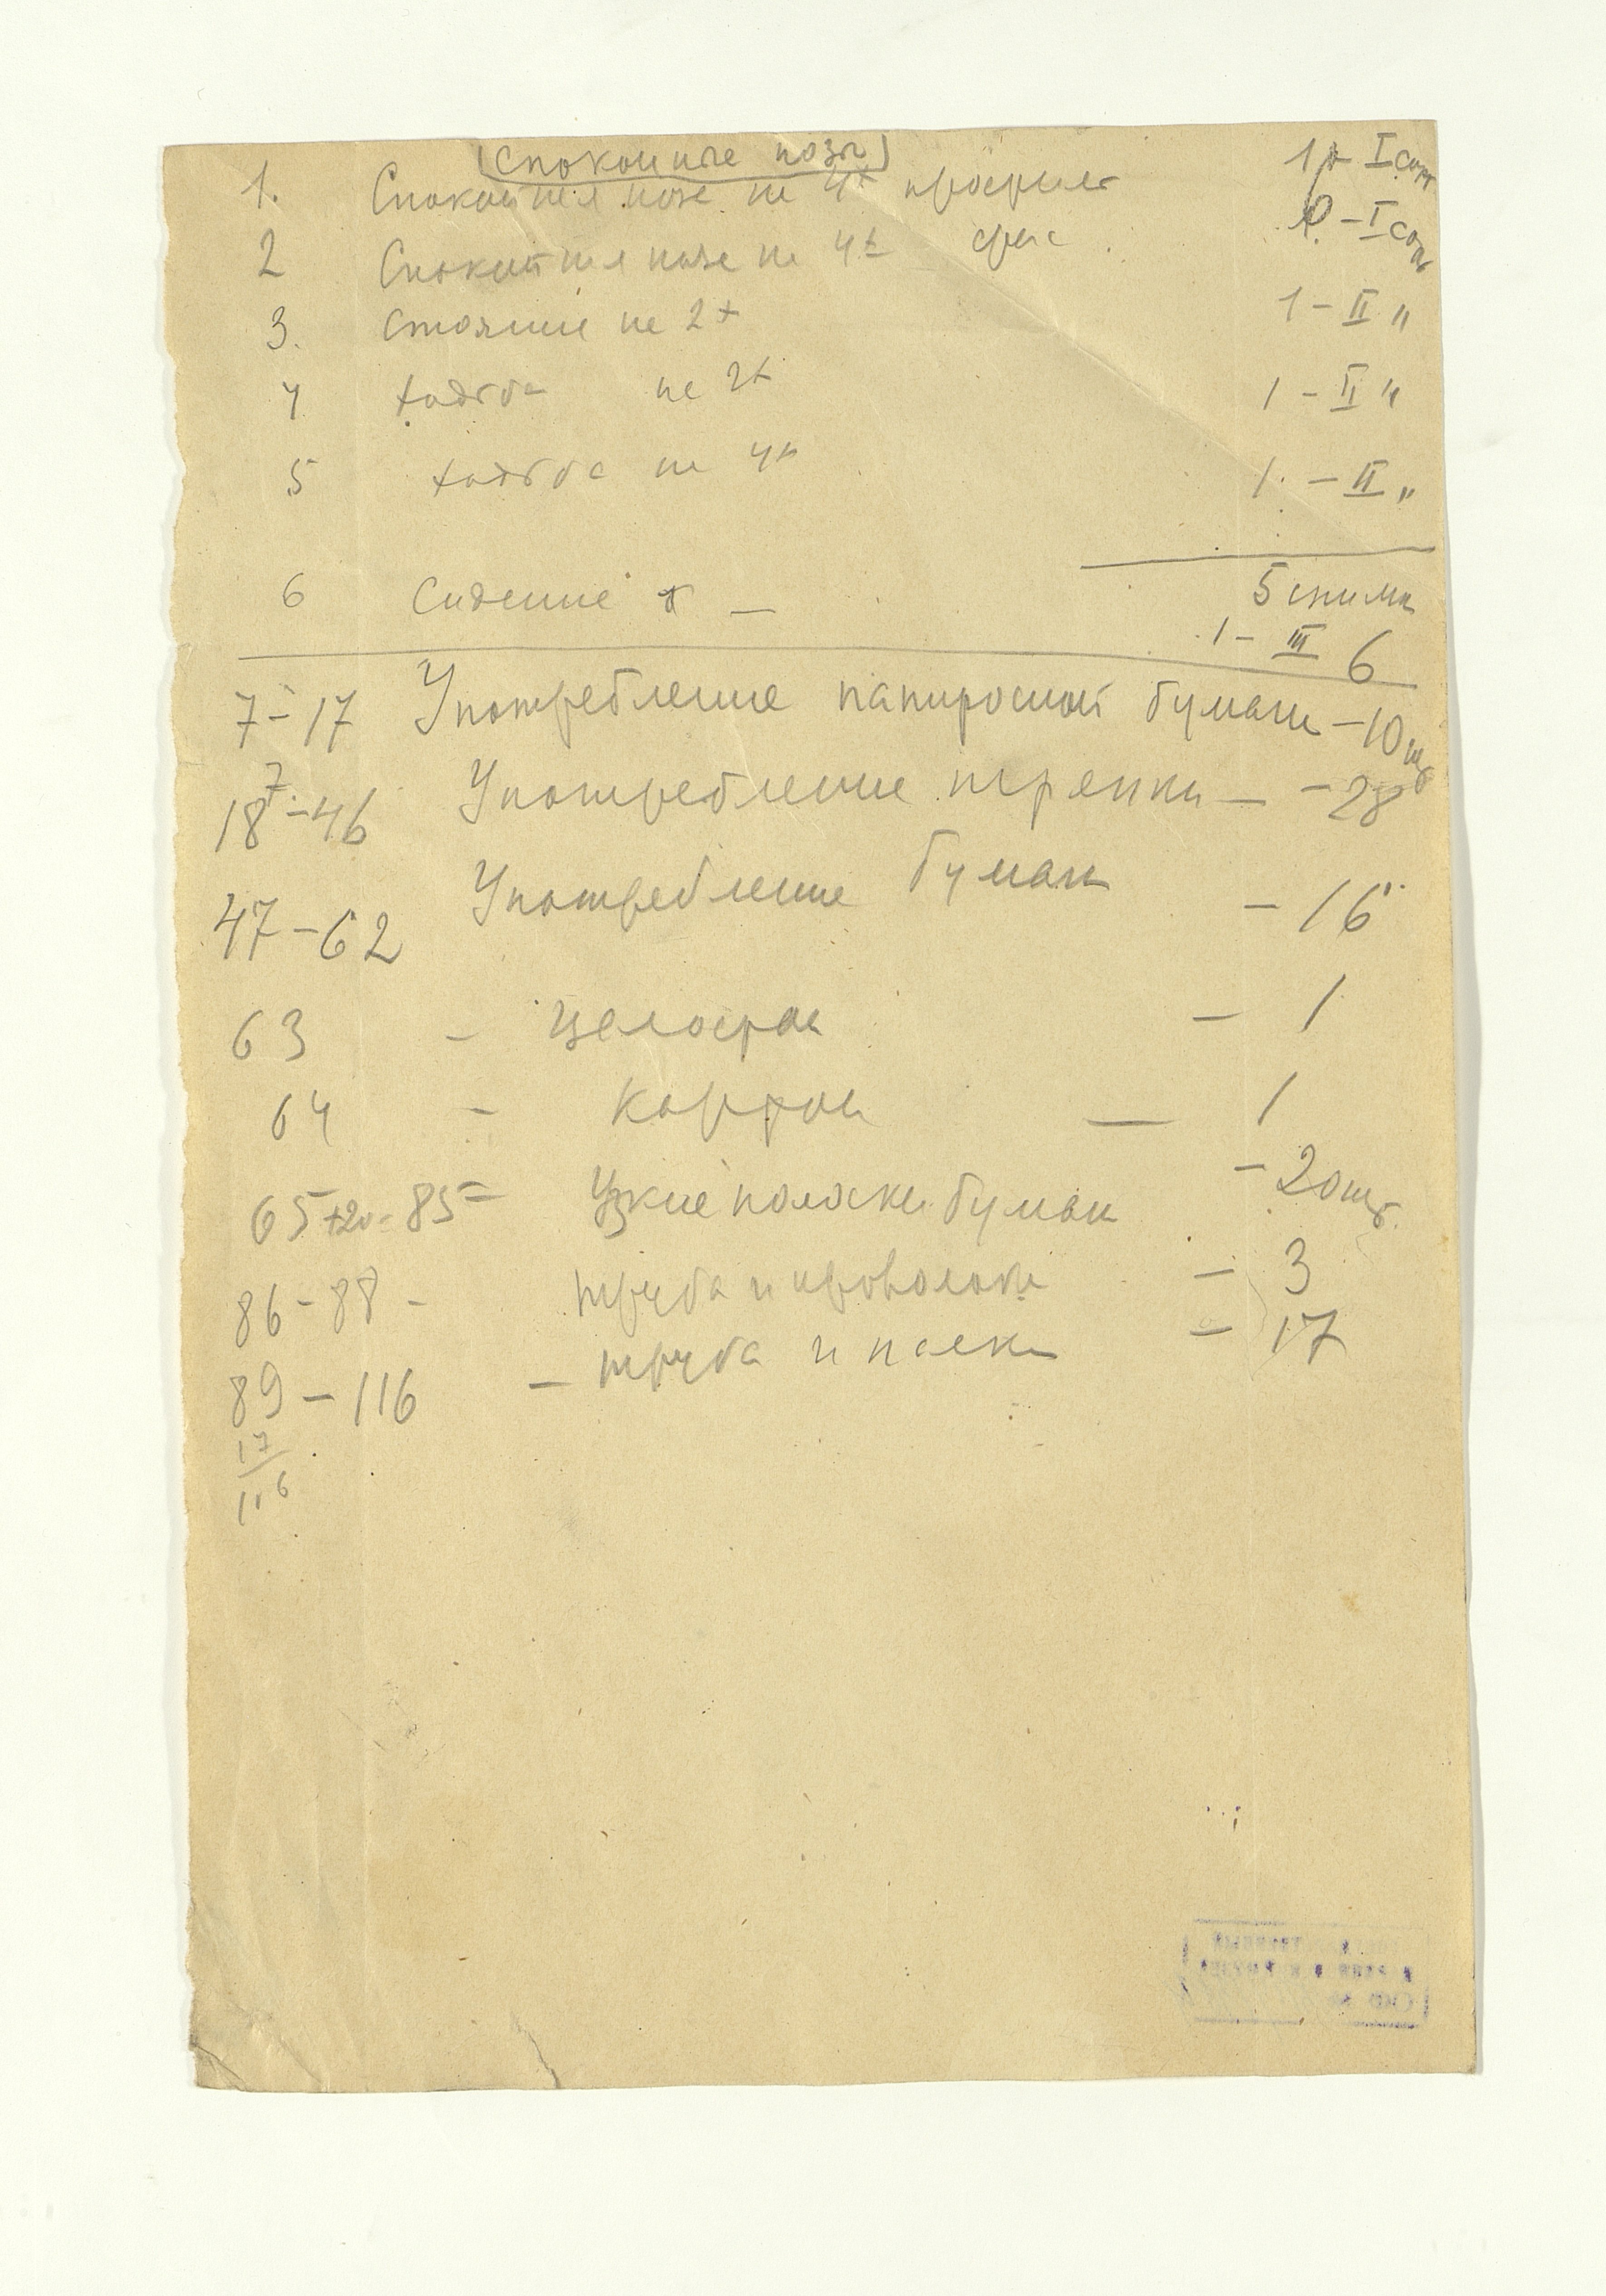 (спокойные позы)
1. Спокойная поза на 4х профиль 1 – I сорт
2 Спокойная поза на 4х фас – I сорт
3. Стояние на 2х 1 – II "
4 ходьба на 2х 1 – II "
5 ходьба на 4х 1. – II "
6 Сидение – 5 снимк
1 – III 6
7 – 17 Употребление папиросной бумаги – 10 шт
18 – 46 Употребление тряпки – – 28
47 – 62 Употребление бумаги – 16
63 – целофан – 1
64 – картон — 1
65+20=85 – Узкие полоски бумаги – 20 шт.
86 – 88 – труба и проволока – 3
89 – 116 – труба и палки – 17
17
116